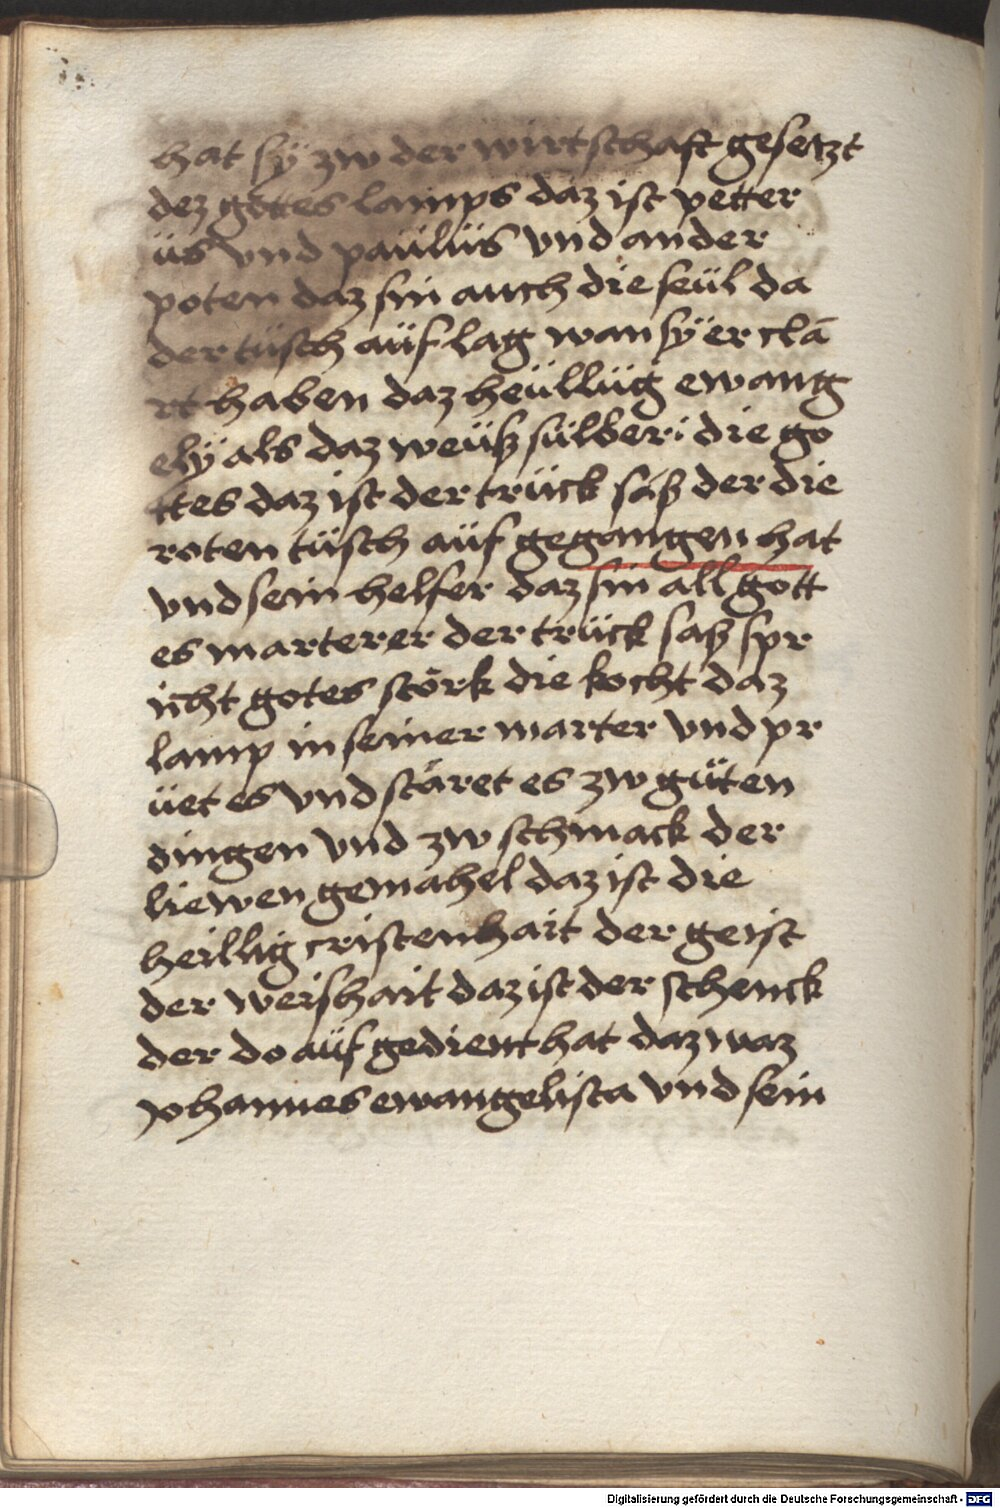 hat sÿ zw der wirtschaft gesetzt
dez gotes lamps daz ist petter
üs vnd paülüs vnd ander
poten daz sin auch die seül da
der tüsch aüf lag wan sÿ er clā
rt haben daz heüllüg ewang
elÿ als daz weüß sülberi die go
ttes daz ist der trück säß der die
roten tüsch aüf gegangen hat
vnd sein helfer daz sin all gott
es marterer der trück saß spr
icht gotes störk die kocht daz
lamp in seiner marter vnd pr
üet es vnd stäret es zw güten
dingen vnd zw schmack der
liewen gemahel daz ist die
heillig cristenhait der geist
der weishait daz ist der schenck
der do aüf gedient hat daz waz
johannes ewangelista vnd sein
Digitalisierung gefördert durch die Deutsche Forschungsgemeinschaft - DFG